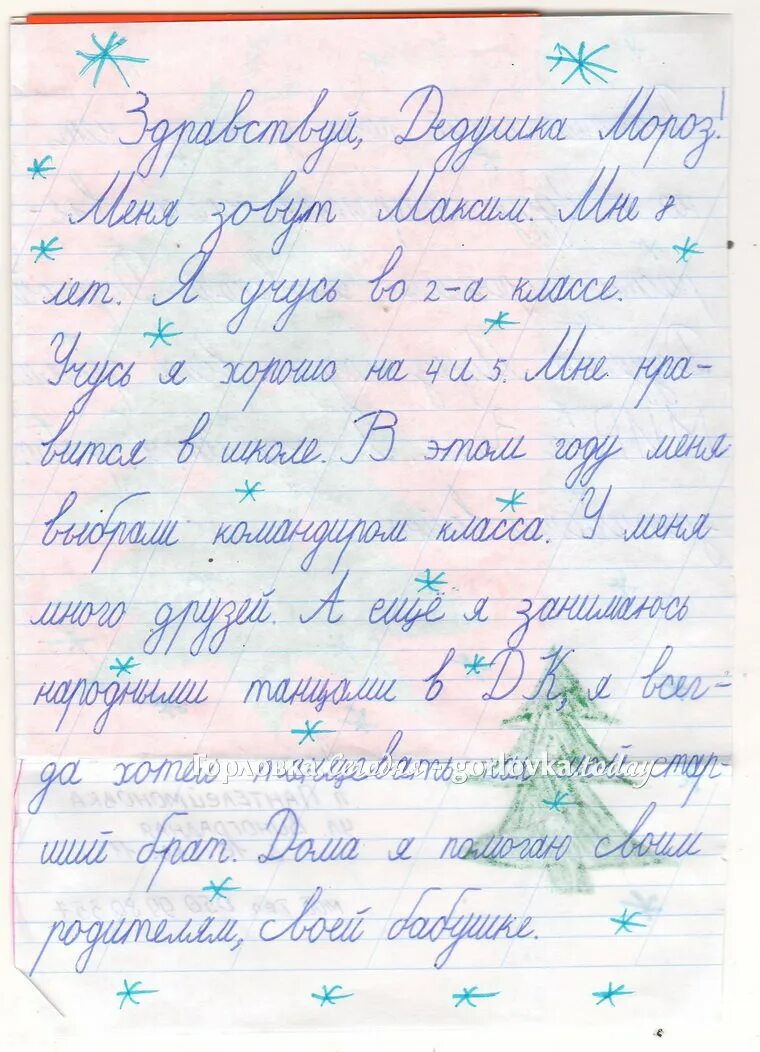 Здравствуй, Дедушка Мороз!
Меня зовут Максим. Мне 8
лет. Я учусь во 2-а классе.
Учусь я хорошо на 4 и 5. Мне нра-
вится в школе. В этом году меня
выбрали командиром класса. У меня
много друзей. А ещё я занимаюсь
народными танцами в ДК, я всег-
да хотел танцевать как мой стар-
Горловка сегодня - gorlovka.today
ший брат. Дома я помогаю своим
родителям, своей бабушке.